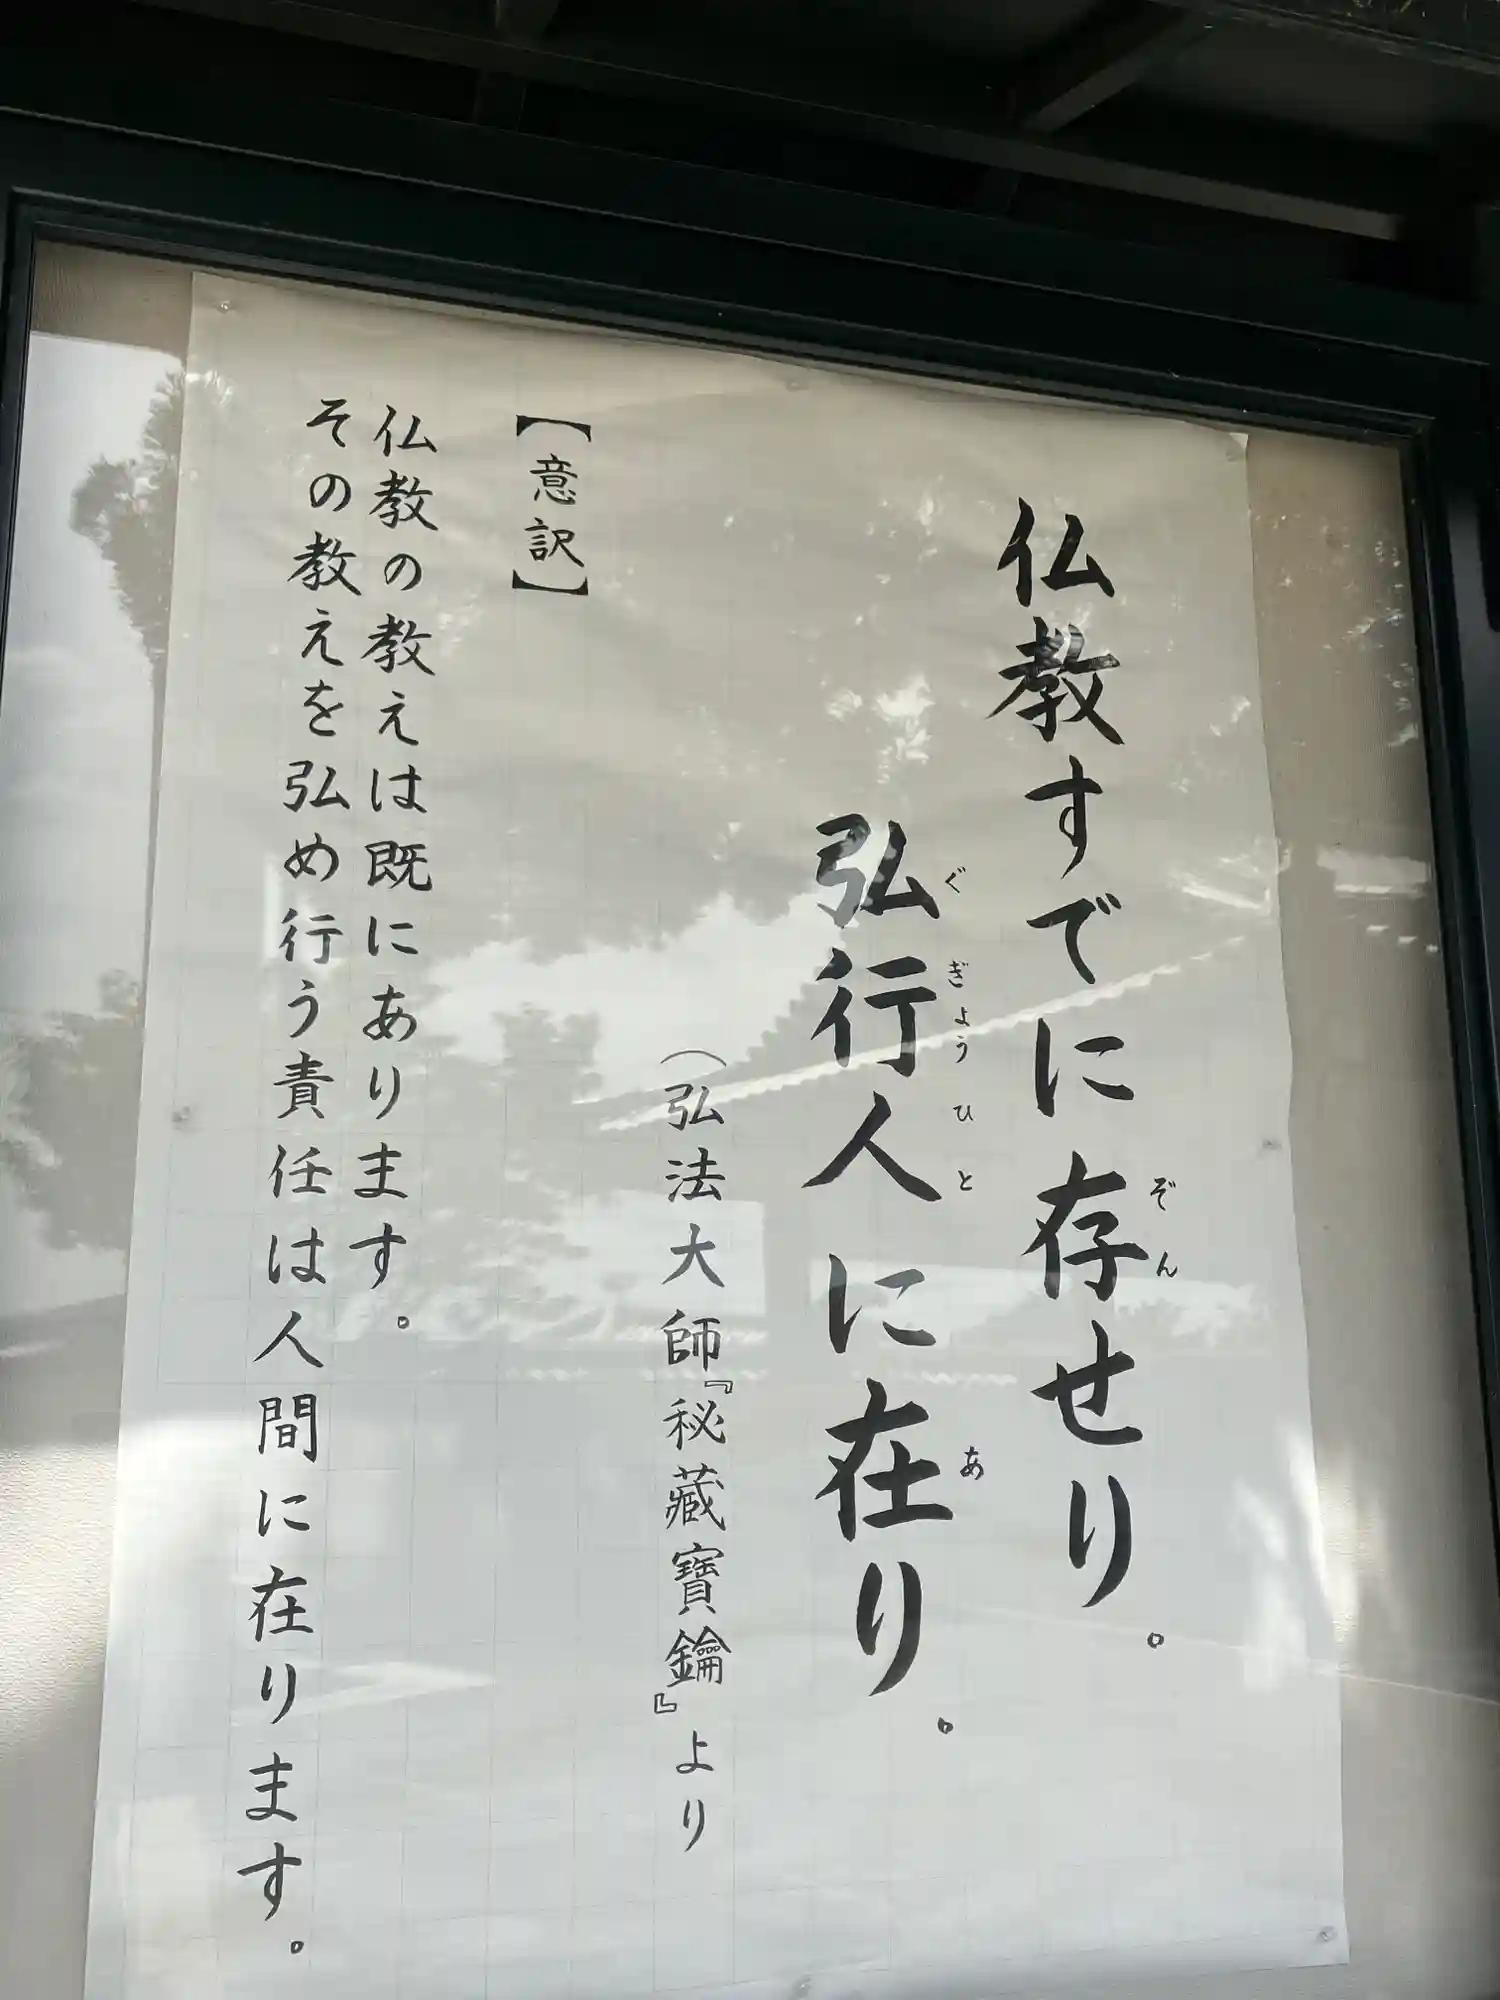 仏教すでに存せり。
ぞん
弘行人に在り。
ぐぎょうひと あ
(弘法大師『秘蔵寶鑰』より
【意訳】
仏教の教えは既にあります。
その教えを弘め行う責任は人間に在ります。